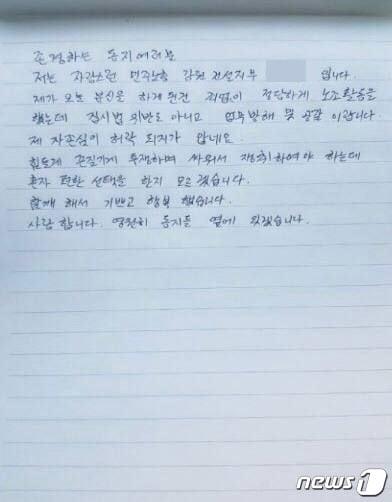 존경하는 동지여러분
저는 자랑스런 민주노총 강원 건설지부 입니다.
제가 오늘 분신을 하게 된건 죄없이 정당하게 노조활동을
했는데 집시법 위반도 아니고 업무방해 및 공갈 이랍니다.
제 자존심이 허락 되지가 않네요.
힘들게 끈질기게 투쟁하며 싸워서 쟁취하여야 하는데
혼자 편한 선택을 한지 모르겠습니다.
함께 해서 기쁘고 행복 했습니다.
사랑 합니다. 영원히 동지들 옆에 있겠습니다.
news1